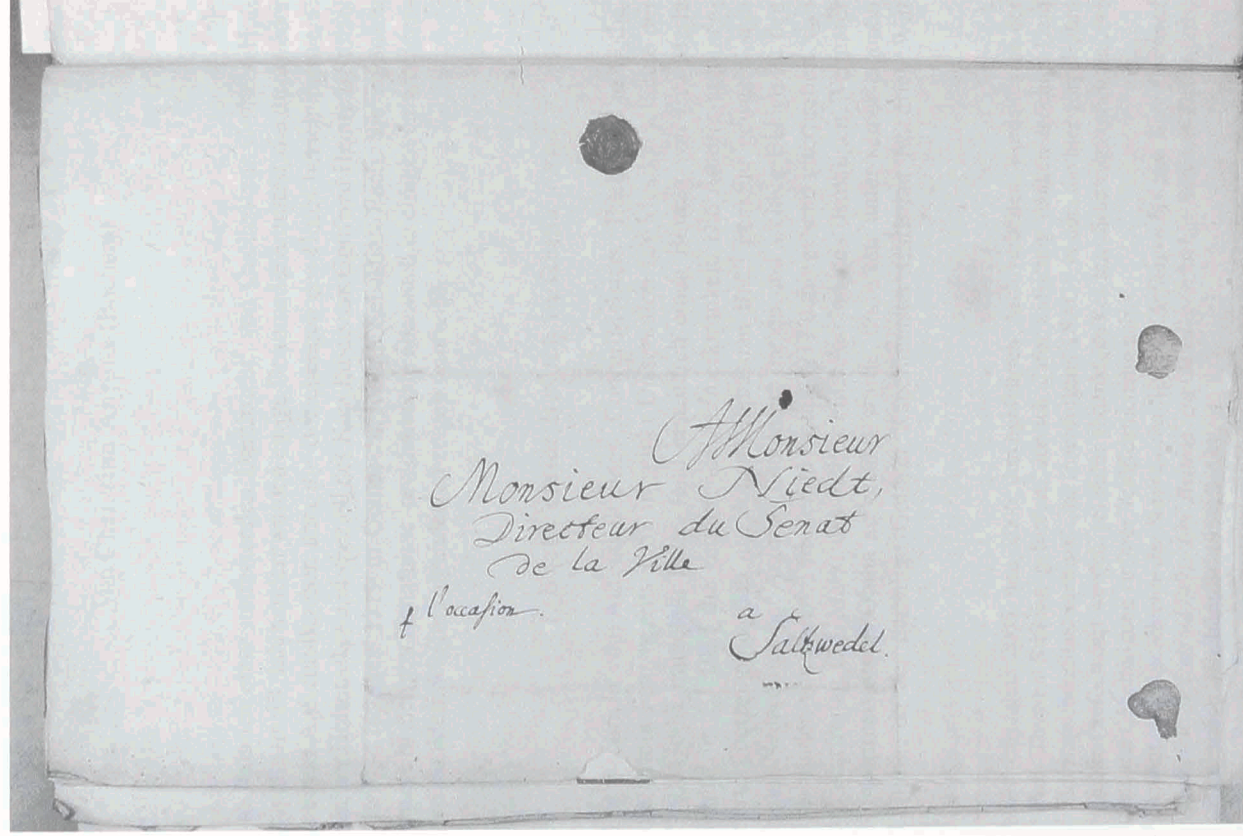 A Monsieur
Monsieur Niedt,
Directeur du Senat
de la Ville
p l'occasion.
a
Saltzwedel.